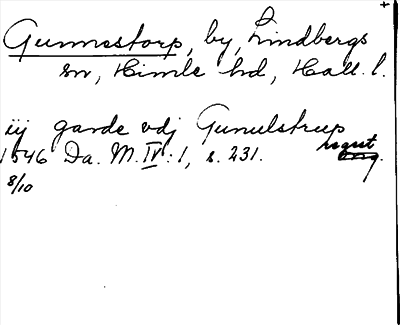 +
Gunnestorp, by, Lindbergs
sn, Himle hd, Hall. l.
iij garde vdj Gunulstrup
1546 Da. M. IV: 1, s. 231. regest
orig.
8/10